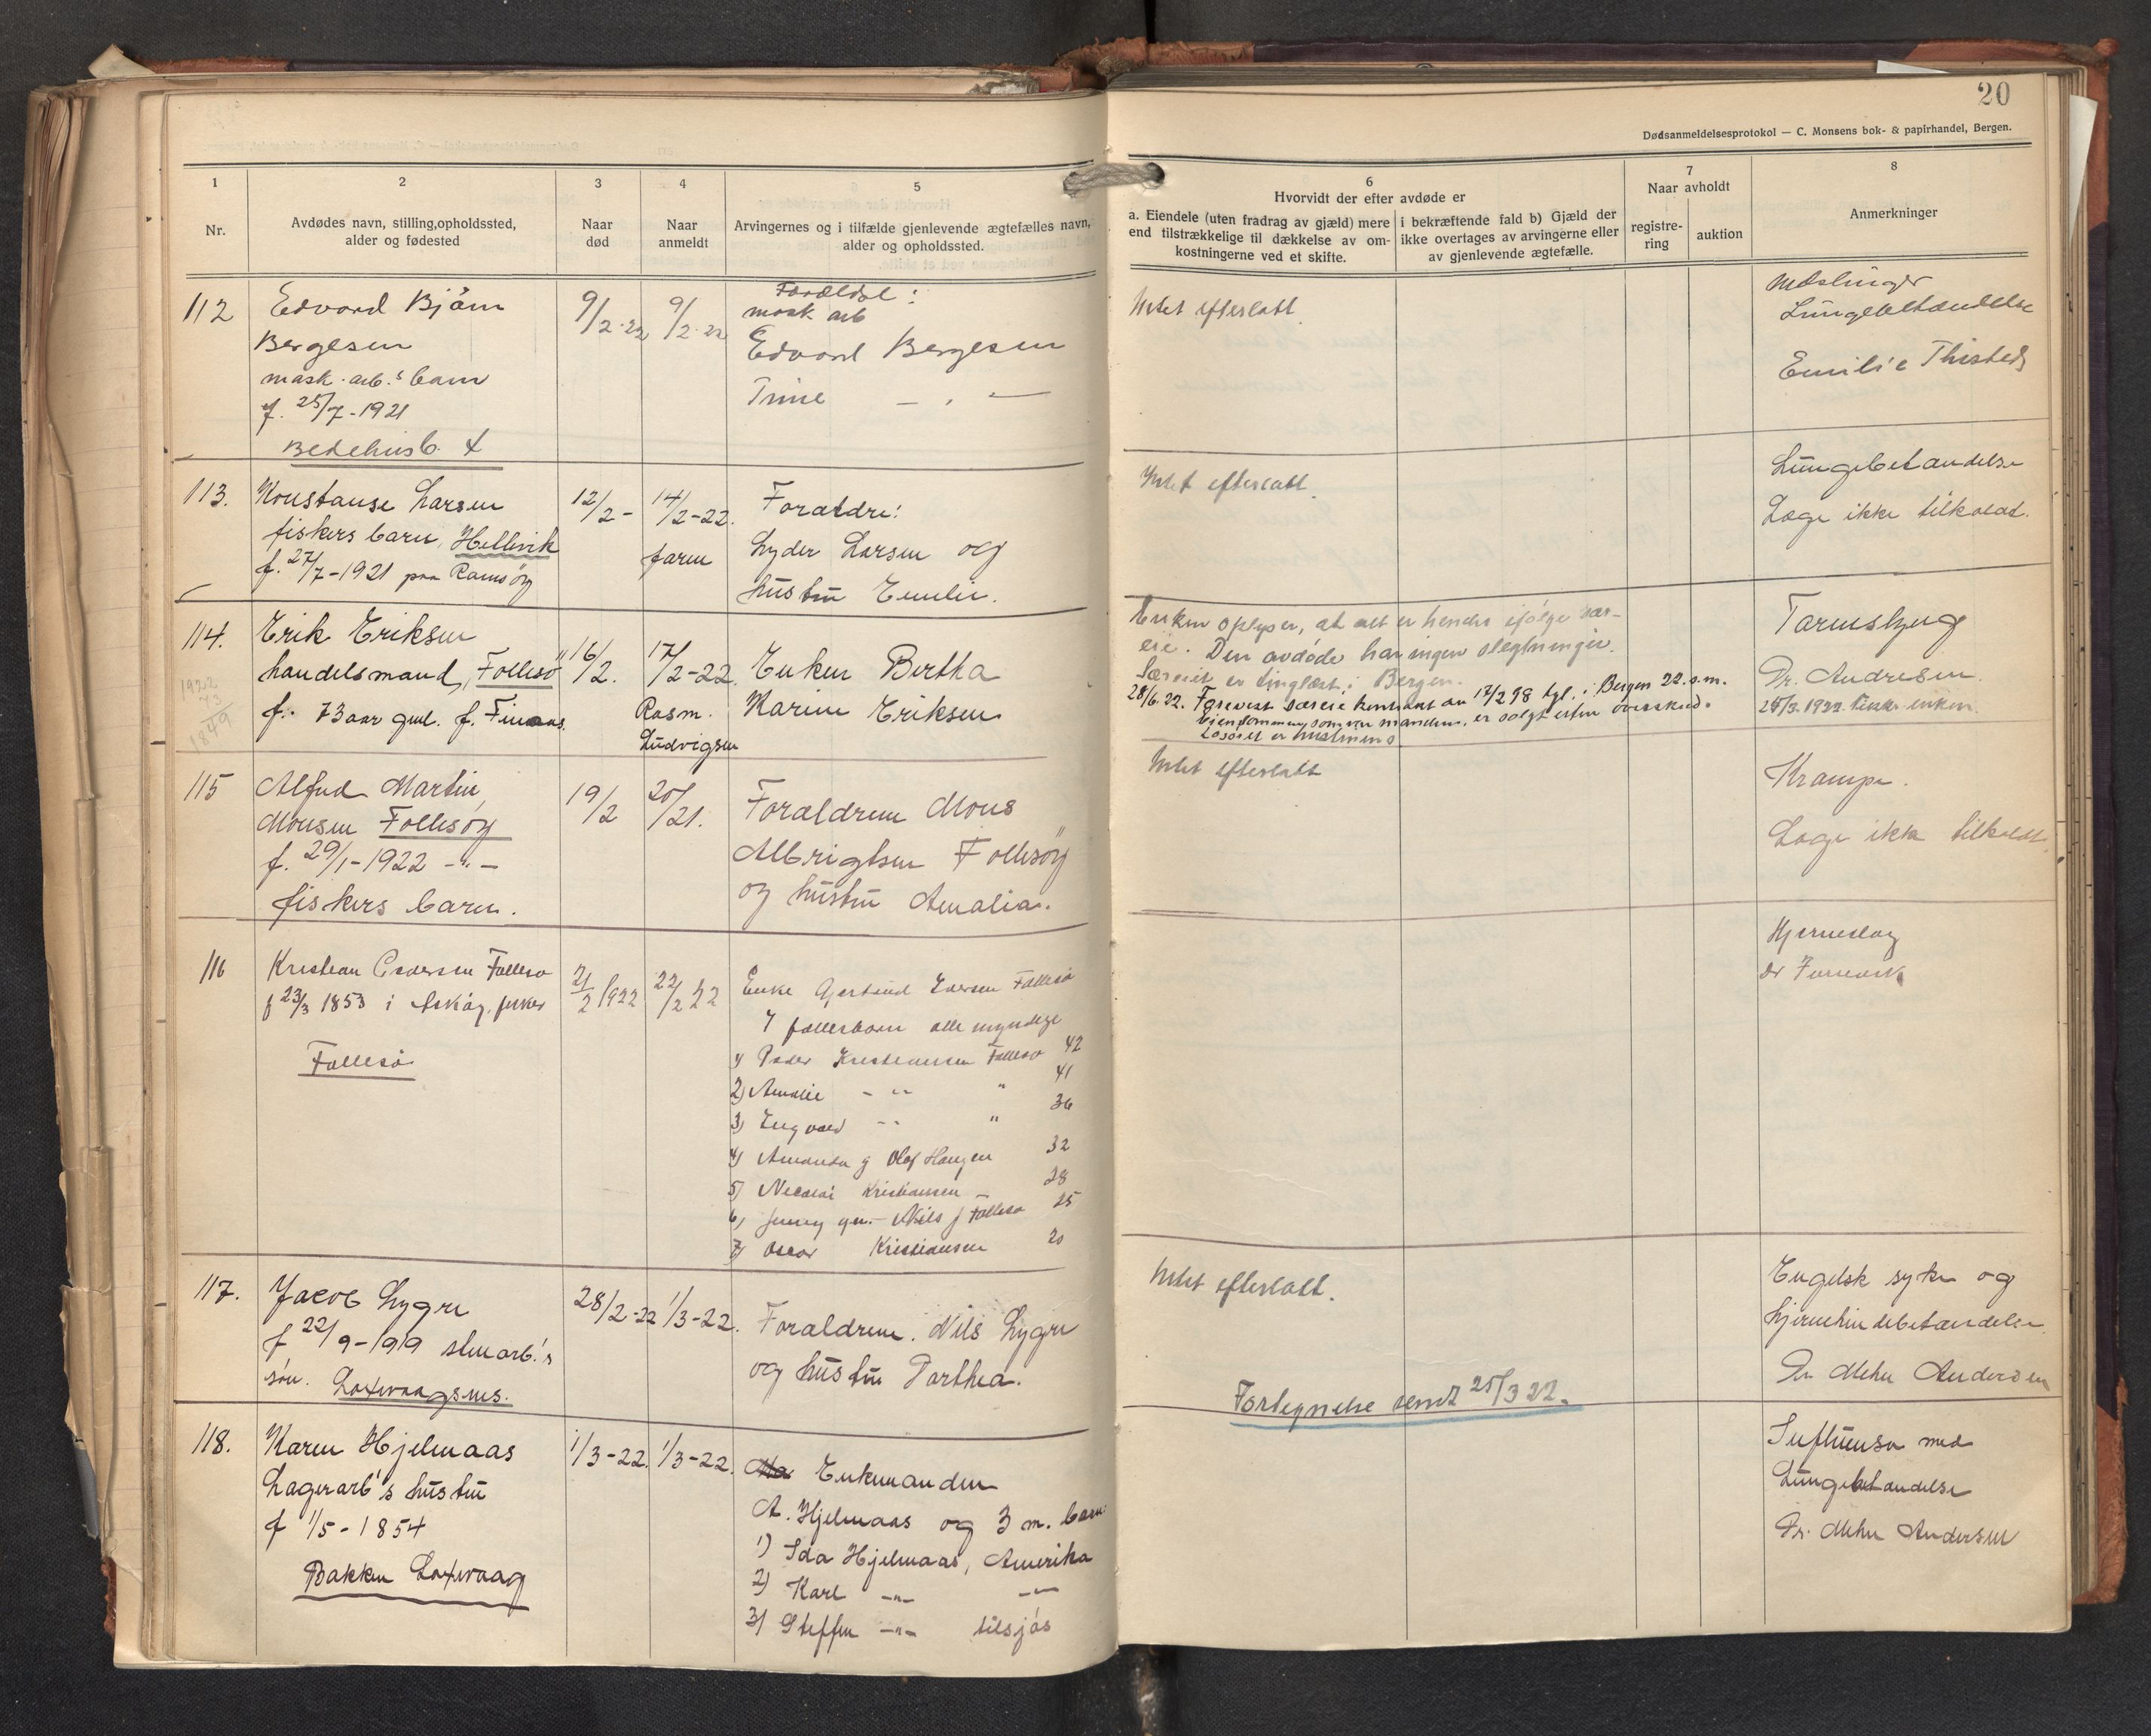 20
Dødsanmeldelsesprotokol — C. Monsens bok- & papirhandel, Bergen.
1
Nr.
2
Avdødes navn, stilling, opholdssted,
alder og fødested
3
Naar
død
4
Naar
anmeldt
5
Arvingernes og i tilfælde gjenlevende ægtefælles navn,
alder og opholdssted.
6
Hvorvidt der efter avdøde er
a. Eiendele (uten fradrag av gjæld) mere
end tilstrækkelige til dækkelse av om-
kostningerne ved et skifte.
i bekræftende fald b) Gjæld der
ikke overtages av arvingerne eller
av gjenlevende ægtefælle.
7
Naar avholdt
registre-
ring
auktion
8
Anmerkninger
112
Edvard Bjørn
Bergesen
mask. arb.s barn
f. 25/7-1921
Bedehusb. 4
9/2-22
9/2-22
Forældre:
mask arb
Edvard Bergesen
Trine — " —
Intet efterlatt
Meslinger
Lungebetændelse
Emilie Thisted
113.
Konstanse Larsen
fiskers barn, Hellevik
f. 27/7-1921 paa Ramsøy
12/2-
14/2-22.
faren
Forældre:
Lyder Larsen og
hustru Emilie.
Intet efterlatt.
Lungebetændelse
Læge ikke tilkaldt.
114.
1922
73
1849
Erik Eriksen
handelsmand, Follesø
f. 73 aar gml. f. Finaas.
16/2.
17/2-22.
Rasm.
Ludvigsen
Enken Bertha
Karine Eriksen
Enken oplyser, at alt er hendes ifølge sær-
eie. Den avdøde har ingen slegtninger.
Særeiet er tinglæst i Bergen.
28/6.22. Forevist særeie kontrakt av 17/2 98 tgl. i Bergen 22. s.m.
Eiendommen, som var mandens, er solgt uten overskud.
Løsøret er hustruens
Tarmslyng
Dr. Andresen.
115
Alfred Martin
Monsen Follesøy
f. 29/1-1922 -"-
fiskers barn.
19/2
20/21.
Forældrene Mons
Albrigtsen Follesøy
og hustru Amalia.
Intet efterlatt
Krampe.
Læge ikke tilkaldt.
116
Kristian Pedersen Follesø
f 23/3 1853 i Askøy. fisker
Follesø
21/2 1922
22/2 22
Enke Gjertrud Iversen Follesø
7 fællesbarn alle myndige
1) Peder Kristiansen Follesø 42
2) Amalie - " " 41
3) Ingvald - " " 36
4) Amanda g Olaf Haugen 32
5) Nicolai Kristiansen - 28
6) Jenny gm. Nils J Follesø 25
7) Oscar Kristiansen 20
Hjerneslag
117.
Jacob Lygre
f 22/9-1919 stenarb.'s
søn. Laxevaagsnes.
28/2-22
1/3-22.
Forældrene. Nils Lygre
og hustru Parthea.
Intet efterlatt.
Engelsk syke og
hjernehindebetændelse.
Dr. Mehn Andersen
118.
Karen Hjelmaas
Lagerarb's hustru
f 1/5-1854
Bakken Laxevaag
1/3-22.
1/3-22.
Enkemanden
A. Hjelmaas og 3 m. barn:
1) Ida Hjelmaas, Amerika
2) Karl -"- -"-
3) Steffen -"- tilsjøs
Fortegnelse sendt 25/3 22.
Influensa med
Lungebetændelse
Dr. Mehn Andersen